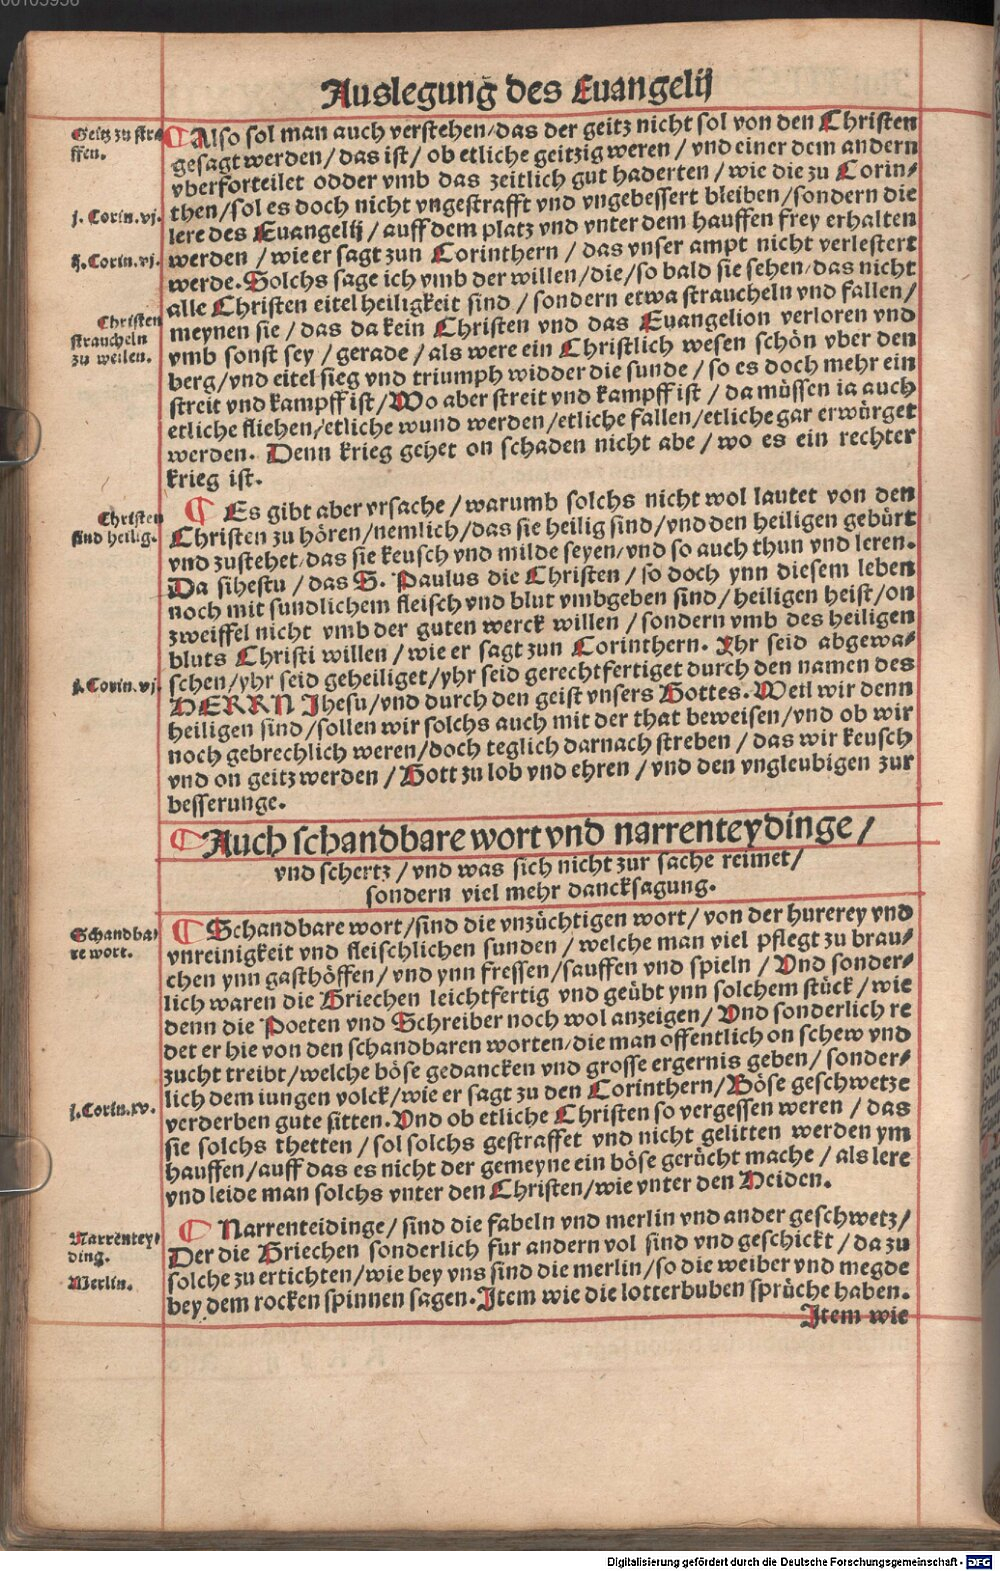 00105956
Auslegung des Euangelij
Geitz zu stra
ffen.
¶ Also sol man auch verstehen/das der geitz nicht sol von den Christen
gesagt werden/das ist/ ob etliche geitzig weren / vnd einer dem andern
vberforteilet odder vmb das zeitlich gut haderten / wie die zu Corin-
j. Corin. vj.
then/sol es doch nicht vngestrafft vnd vngebessert bleiben/sondern die
lere des Euangelij / auff dem platz vnd vnter dem hauffen frey erhalten
ij. Corin. vj.
werden / wie er sagt zun Corinthern / das vnser ampt nicht verlestert
werde. Solchs sage ich vmb der willen/die/so bald sie sehen/das nicht
alle Christen eitel heiligkeit sind / sondern etwa straucheln vnd fallen/
Christen
straucheln
zu weilen.
meynen sie / das da kein Christen vnd das Euangelion verloren vnd
vmb sonst sey / gerade / als were ein Christlich wesen schön vber den
berg/vnd eitel sieg vnd triumph widder die sunde / so es doch mehr ein
streit vnd kampff ist/Wo aber streit vnd kampff ist / da müssen ia auch
etliche fliehen/etliche wund werden/etliche fallen/etliche gar erwürget
werden. Denn krieg gehet on schaden nicht abe / wo es ein rechter
krieg ist.
Christen
sind heilig.
¶ Es gibt aber vrsache / warumb solchs nicht wol lautet von den
Christen zu hören/nemlich/das sie heilig sind/vnd den heiligen gebürt
vnd zustehet/das sie keusch vnd milde seyen/vnd so auch thun vnd leren.
Da sihestu / das S. Paulus die Christen / so doch ynn diesem leben
noch mit sundlichem fleisch vnd blut vmbgeben sind/ heiligen heist/on
zweiffel nicht vmb der guten werck willen / sondern vmb des heiligen
bluts Christi willen / wie er sagt zun Corinthern. Yhr seid abgewa-
j. Corin. vj.
schen/yhr seid geheiliget/yhr seid gerechtfertiget durch den namen des
HERRN Jhesu/vnd durch den geist vnsers Gottes. Weil wir denn
heiligen sind/sollen wir solchs auch mit der that beweisen/vnd ob wir
noch gebrechlich weren/doch teglich darnach streben / das wir keusch
vnd on geitz werden / Gott zu lob vnd ehren / vnd den vngleubigen zur
besserunge.
¶ Auch schandbare wort vnd narrenteydinge /
vnd schertz / vnd was sich nicht zur sache reimet/
sondern viel mehr dancksagung.
Schandba-
re wort.
¶ Schandbare wort/sind die vnzüchtigen wort/ von der hurerey vnd
vnreinigkeit vnd fleischlichen sunden / welche man viel pflegt zu brau-
chen ynn gasthöffen/ vnd ynn fressen/sauffen vnd spieln / Vnd sonder-
lich waren die Griechen leichtfertig vnd geübt ynn solchem stück/ wie
denn die Poeten vnd Schreiber noch wol anzeigen/ Vnd sonderlich re
det er hie von den schandbaren worten/die man offentlich on schew vnd
zucht treibt/welche böse gedancken vnd grosse ergernis geben/ sonder-
lich dem iungen volck/ wie er sagt zu den Corinthern/ Böse geschwetze
j. Corin. xv.
verderben gute sitten. Vnd ob etliche Christen so vergessen weren / das
sie solchs thetten / sol solchs gestraffet vnd nicht gelitten werden ym
hauffen/auff das es nicht der gemeyne ein böse gerücht mache / als lere
vnd leide man solchs vnter den Christen/wie vnter den Heiden.
Narrentey-
ding.
Merlin.
¶ Narrenteidinge/ sind die fabeln vnd merlin vnd ander geschwetz/
Der die Griechen sonderlich fur andern vol sind vnd geschickt / da zu
solche zu ertichten/wie bey vns sind die merlin/so die weiber vnd megde
bey dem rocken spinnen sagen. Item wie die lotterbuben sprüche haben.
Item wie
Digitalisierung gefördert durch die Deutsche Forschungsgemeinschaft - DFG